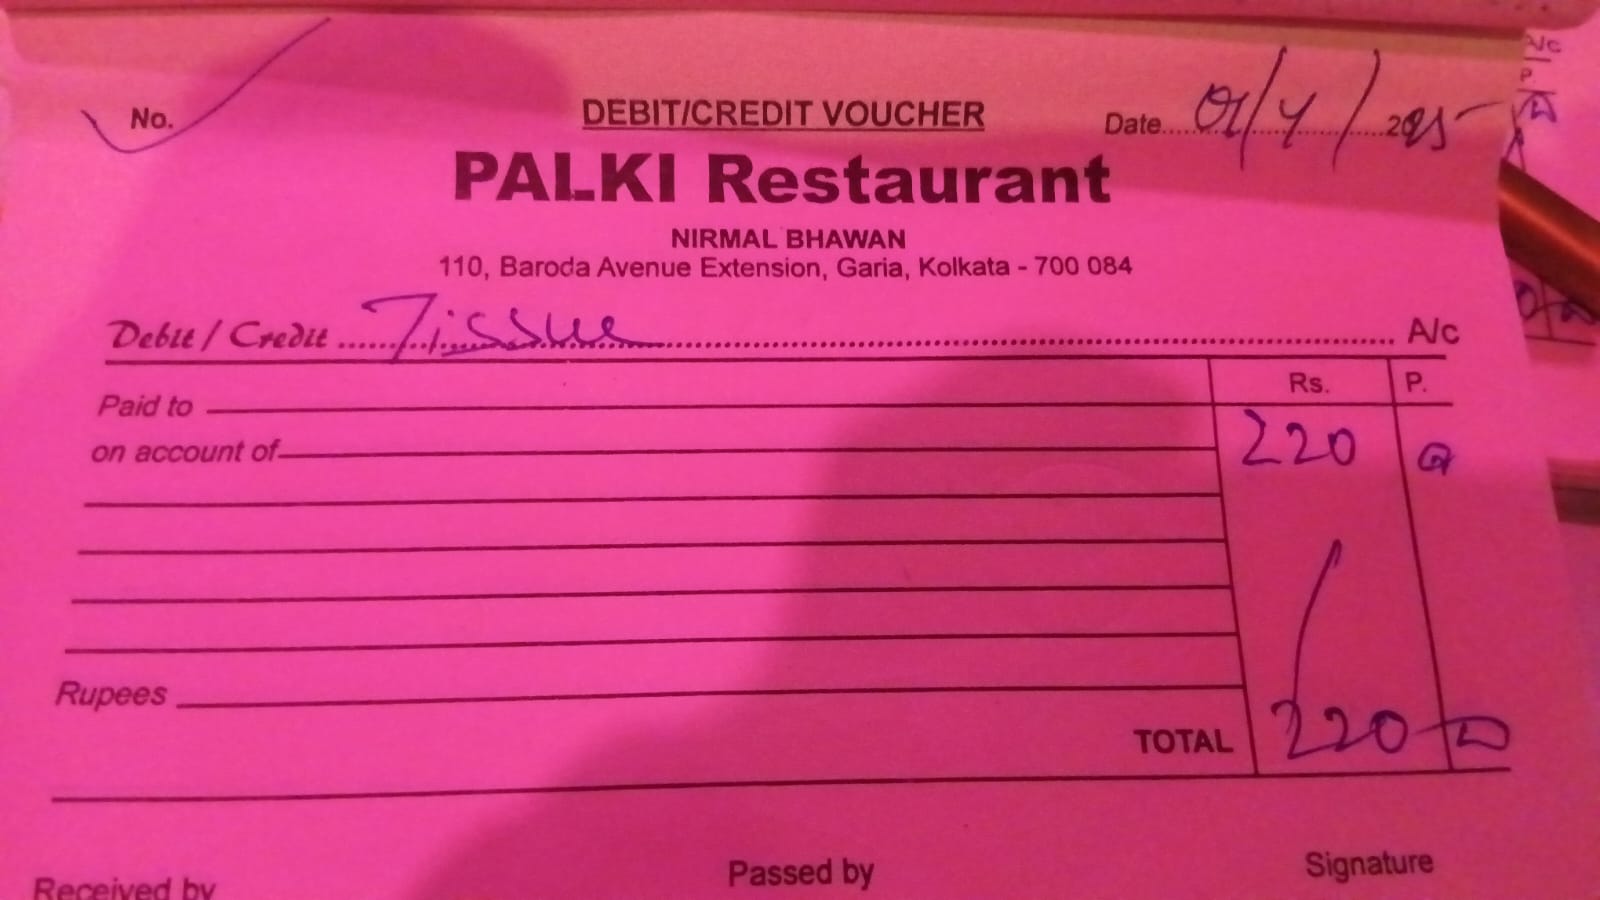 No.
DEBIT/CREDIT VOUCHER
Date 01/4/2025
PALKI Restaurant
NIRMAL BHAWAN
110, Baroda Avenue Extension, Garia, Kolkata - 700 084
Debit / Credit Tissue A/c
Rs. P.
Paid to
220
on account of
Rupees
TOTAL 220
Received by Passed by Signature
A/c
P.